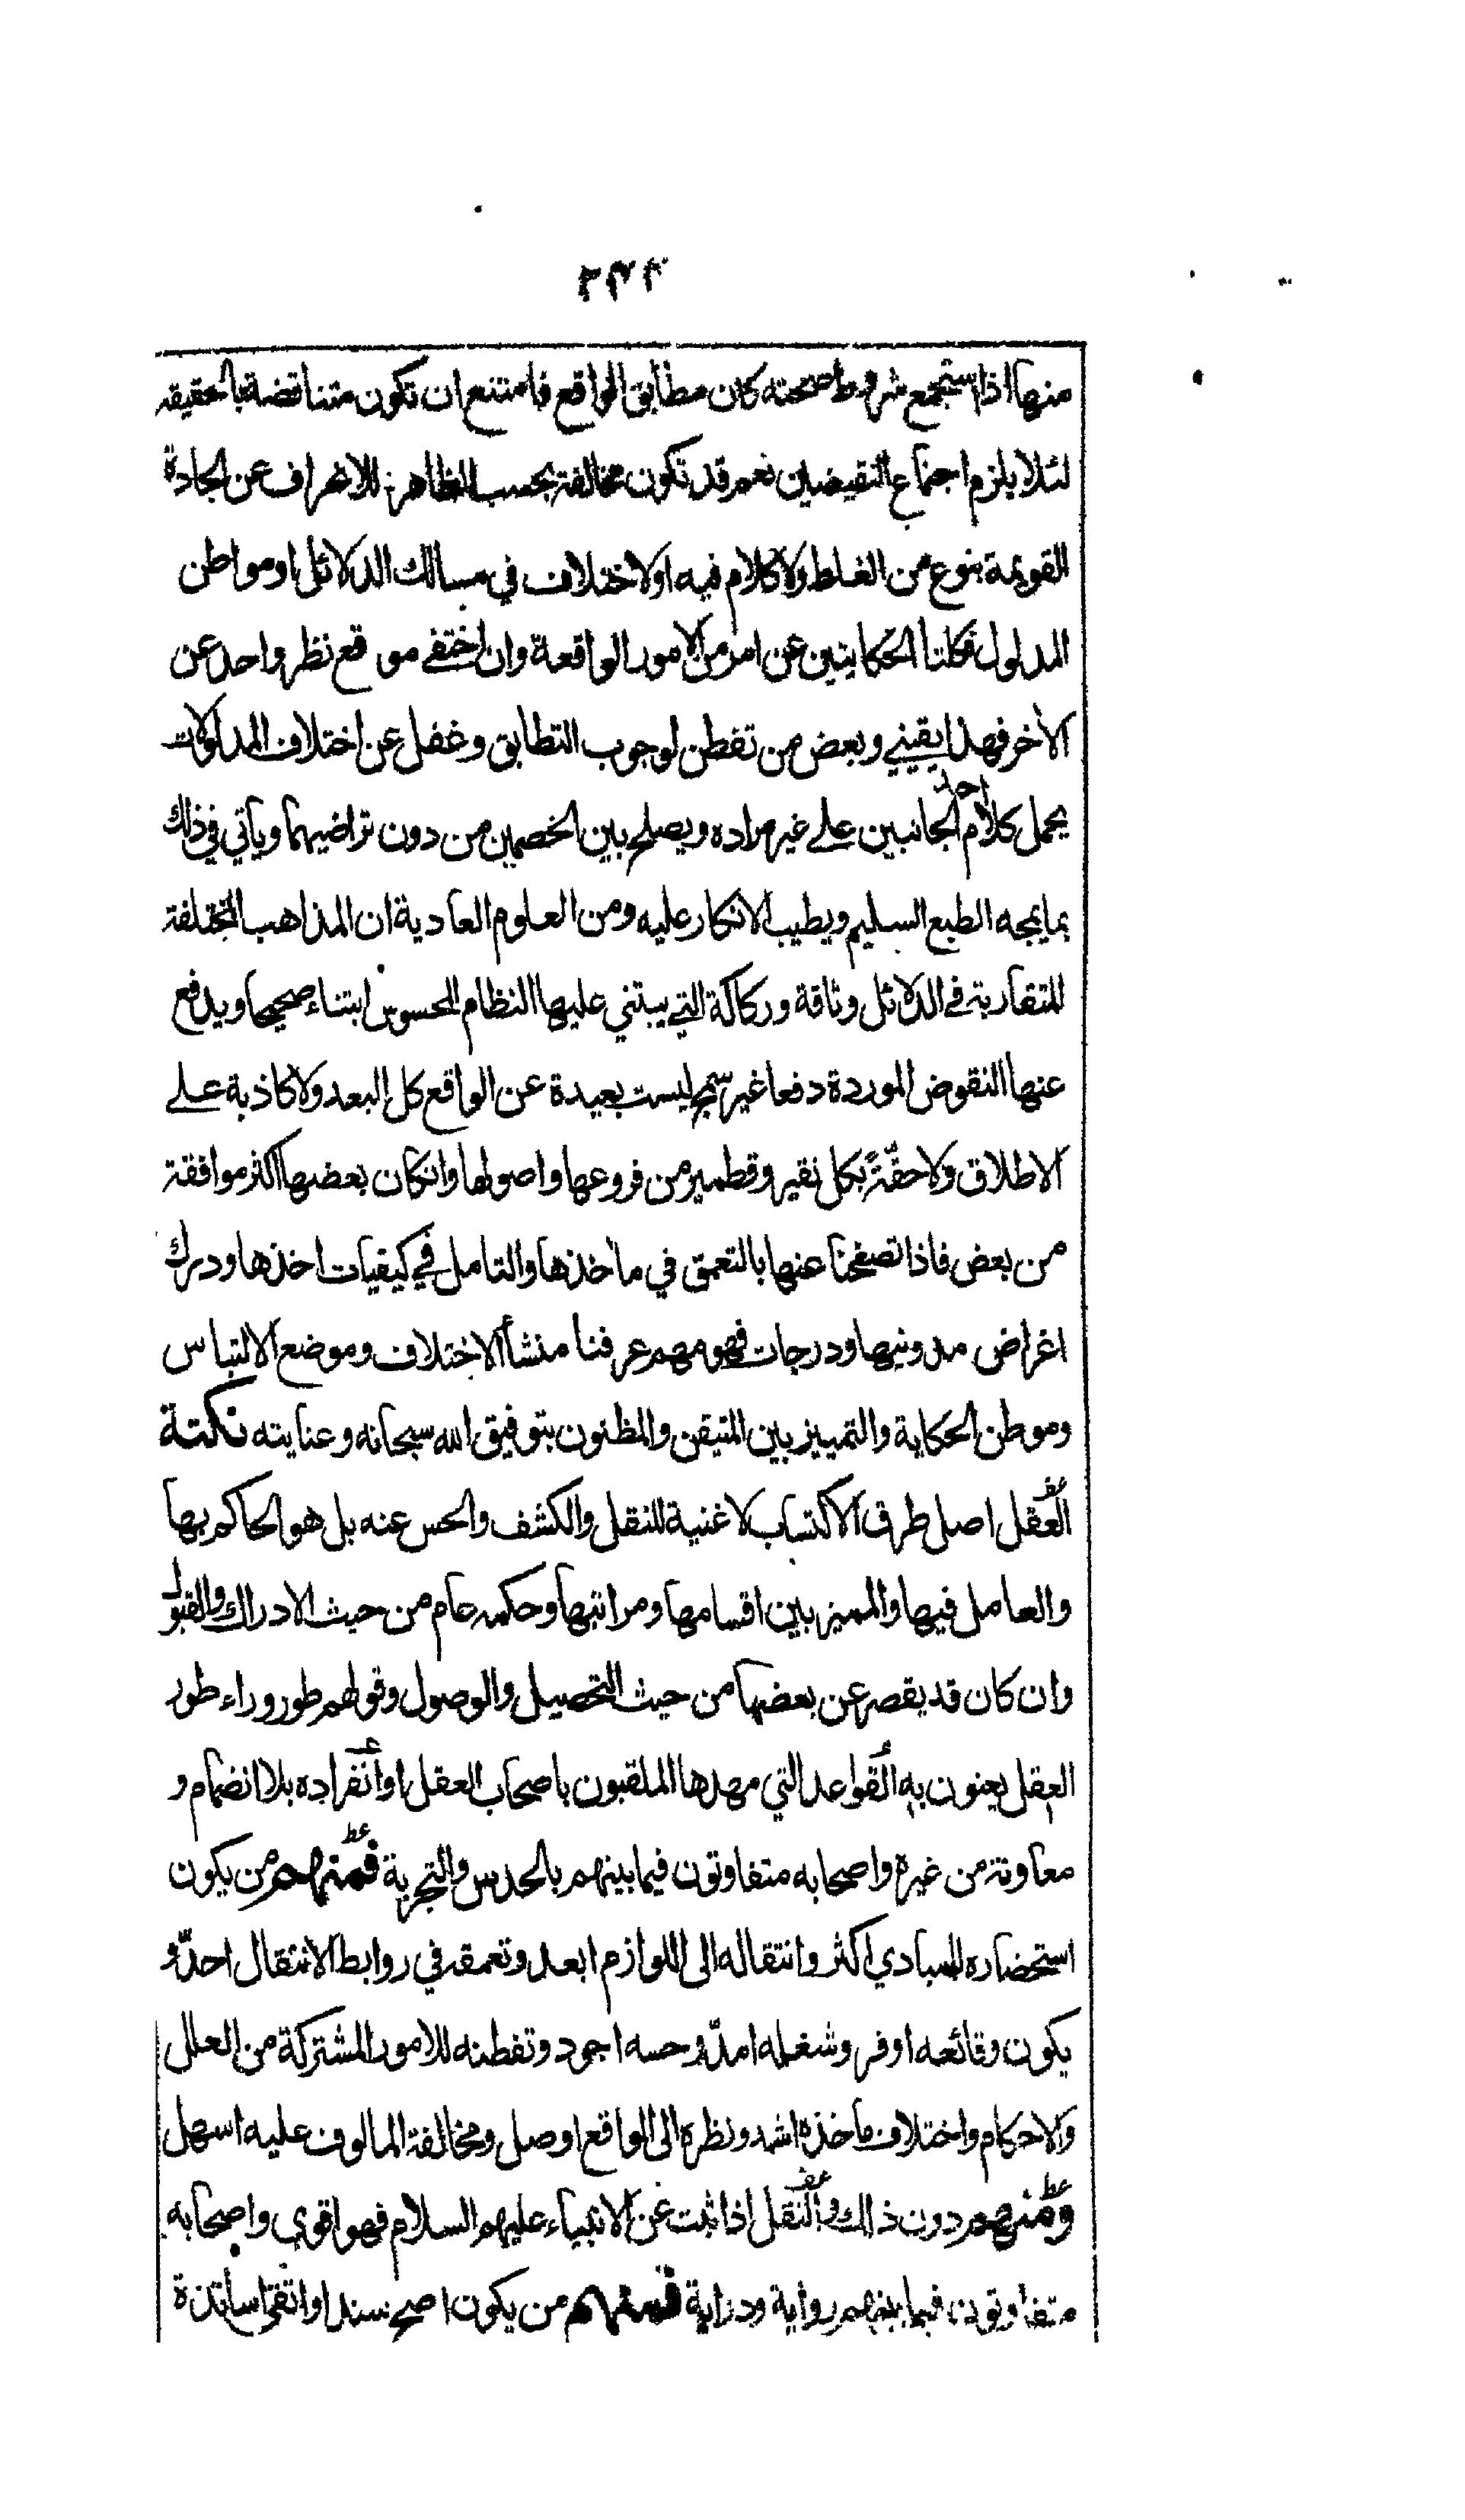 منها اذا استجمع شروط صحته كان مطابق الواقع فامتنع ان تكون متناقضة بالحقيقه
لئلا يلزم اجتماع النقيضين نعم قد تكون مخالفة بحسب الظاهر للانحراف عن الجادة
القويمة بنوع من الغلط ولا كلام فيه اولاختلاف في مسالك الدلائل او مواطن
المدلول فكلتا الحكايتين عن امر من الامور الواقعة وان اختفے موقع نظر واحد عن
الآخر فهذا يقيني وبعض من تفطن لوجوب التطابق وغفل عن اختلاف المدلولات
يحمل كلام احد الجانبين علے غير مراده ويصلح بين الخصمين من دون تراضيهما ويأتي في ذلك
بما يمجه الطبع السليم ويطيب الانكار عليه ومن العلوم العادية ان المذاهب المختلفة
المتقاربة فے الدلائل وثاقة وركاكة التے يبتني عليها النظام المحسوس ابتناء صحيحا ويدفع
عنها النقوض الموردة دفعا غير سمج ليست بعيدة عن الواقع كل البعد ولا كاذبة علے
الاطلاق ولا حقّةً بكل نقير وقطمير من فروعها واصولها وانكان بعضها اكثر موافقة
من بعض فاذا تصفحنا عنها بالتعمق في مآخذها والتامل فے كيفيات اخذها ودرك
اغراض مدونيها ودرجات فهومهم عرفنا منشأ الاختلاف وموضع الالتباس
وموطن الحكاية والتمييز بين المتيقن والمظنون بتوفيق الله سبحانه وعنايته نكتة
العقل اصل طرق الاكتساب لا غنية للنقل والكشف والحس عنه بل هو الحاكم بها
والعامل فيها والمميز بين اقسامها ومراتبها وحكمه عام من حيث الادراك والقبول
وان كان قد يقصر عن بعضها من حيث التحصيل والوصول وقولهم طور وراء طور
العقل يعنون به القواعد التي مهدها الملقبون باصحاب العقل او انفراده بلا انضمام و
معاونة من غيره واصحابه متفاوتون فيما بينهم بالحدس والتجربة فمنهم من يكون
استحضاره للمبادي اكثر وانتقاله الى اللوازم ابعد وتعمقه في روابط الانتقال احدّ و
يكون وقائعه اوفر وشغله امدّ وحسه اجود وتفطنه للامور المشتركة من العلل
والاحكام واختلاف مآخذه اشد ونظره الى الواقع اوصل ومخالفة المالوف عليه اسهل
ومنهم دون ذالك والنقل اذا ثبت عن الانبياء عليهم السلام فهو اقوى واصحابه
متفاوتون فيما بينهم رواية ودراية فمنهم من يكون اصح سندا واتقى اساتذة